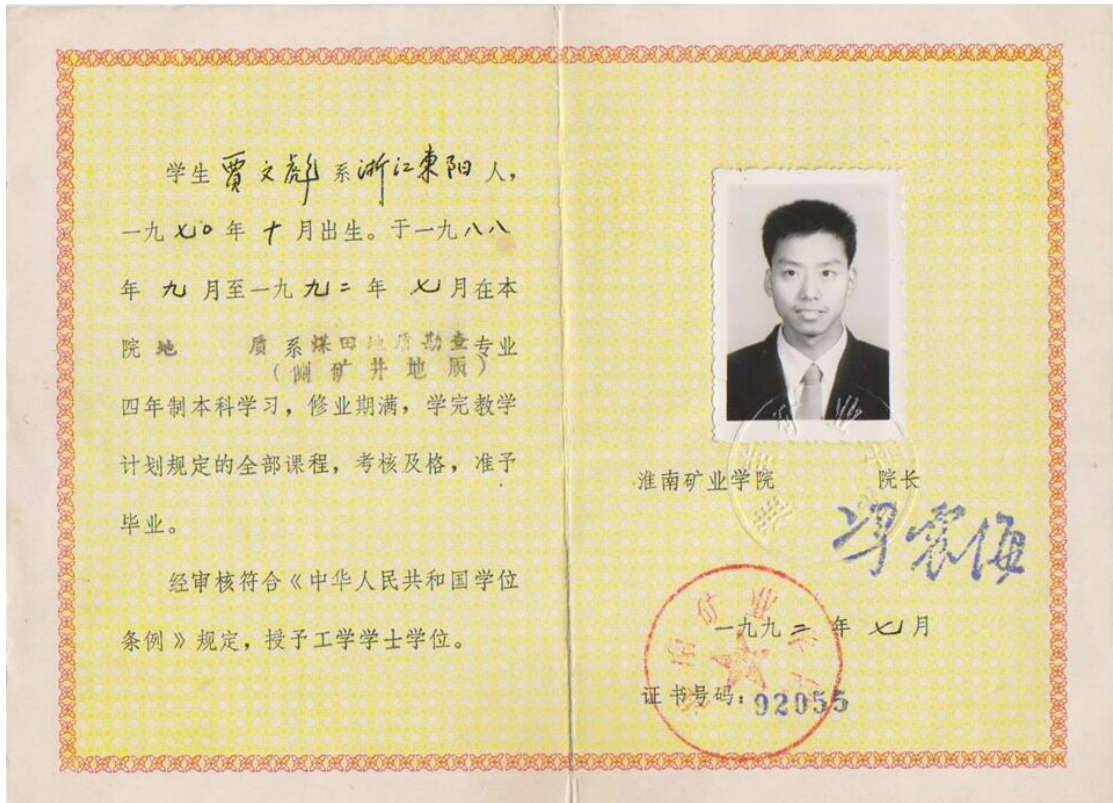 学生 賈文彪 系 浙江東阳 人，
一九七0年十月出生。于一九八八
年九月至一九九二年七月在本
院地 质系煤田地质勘查专业
（侧矿井地质）
四年制本科学习，修业期满，学完教学
计划规定的全部课程，考核及格，准予
毕业。
经审核符合《中华人民共和国学位
条例》规定，授予工学学士学位。
淮南矿业学院 院长
冯震海
一九九二年七月
证书号码：92055
淮南矿业学院